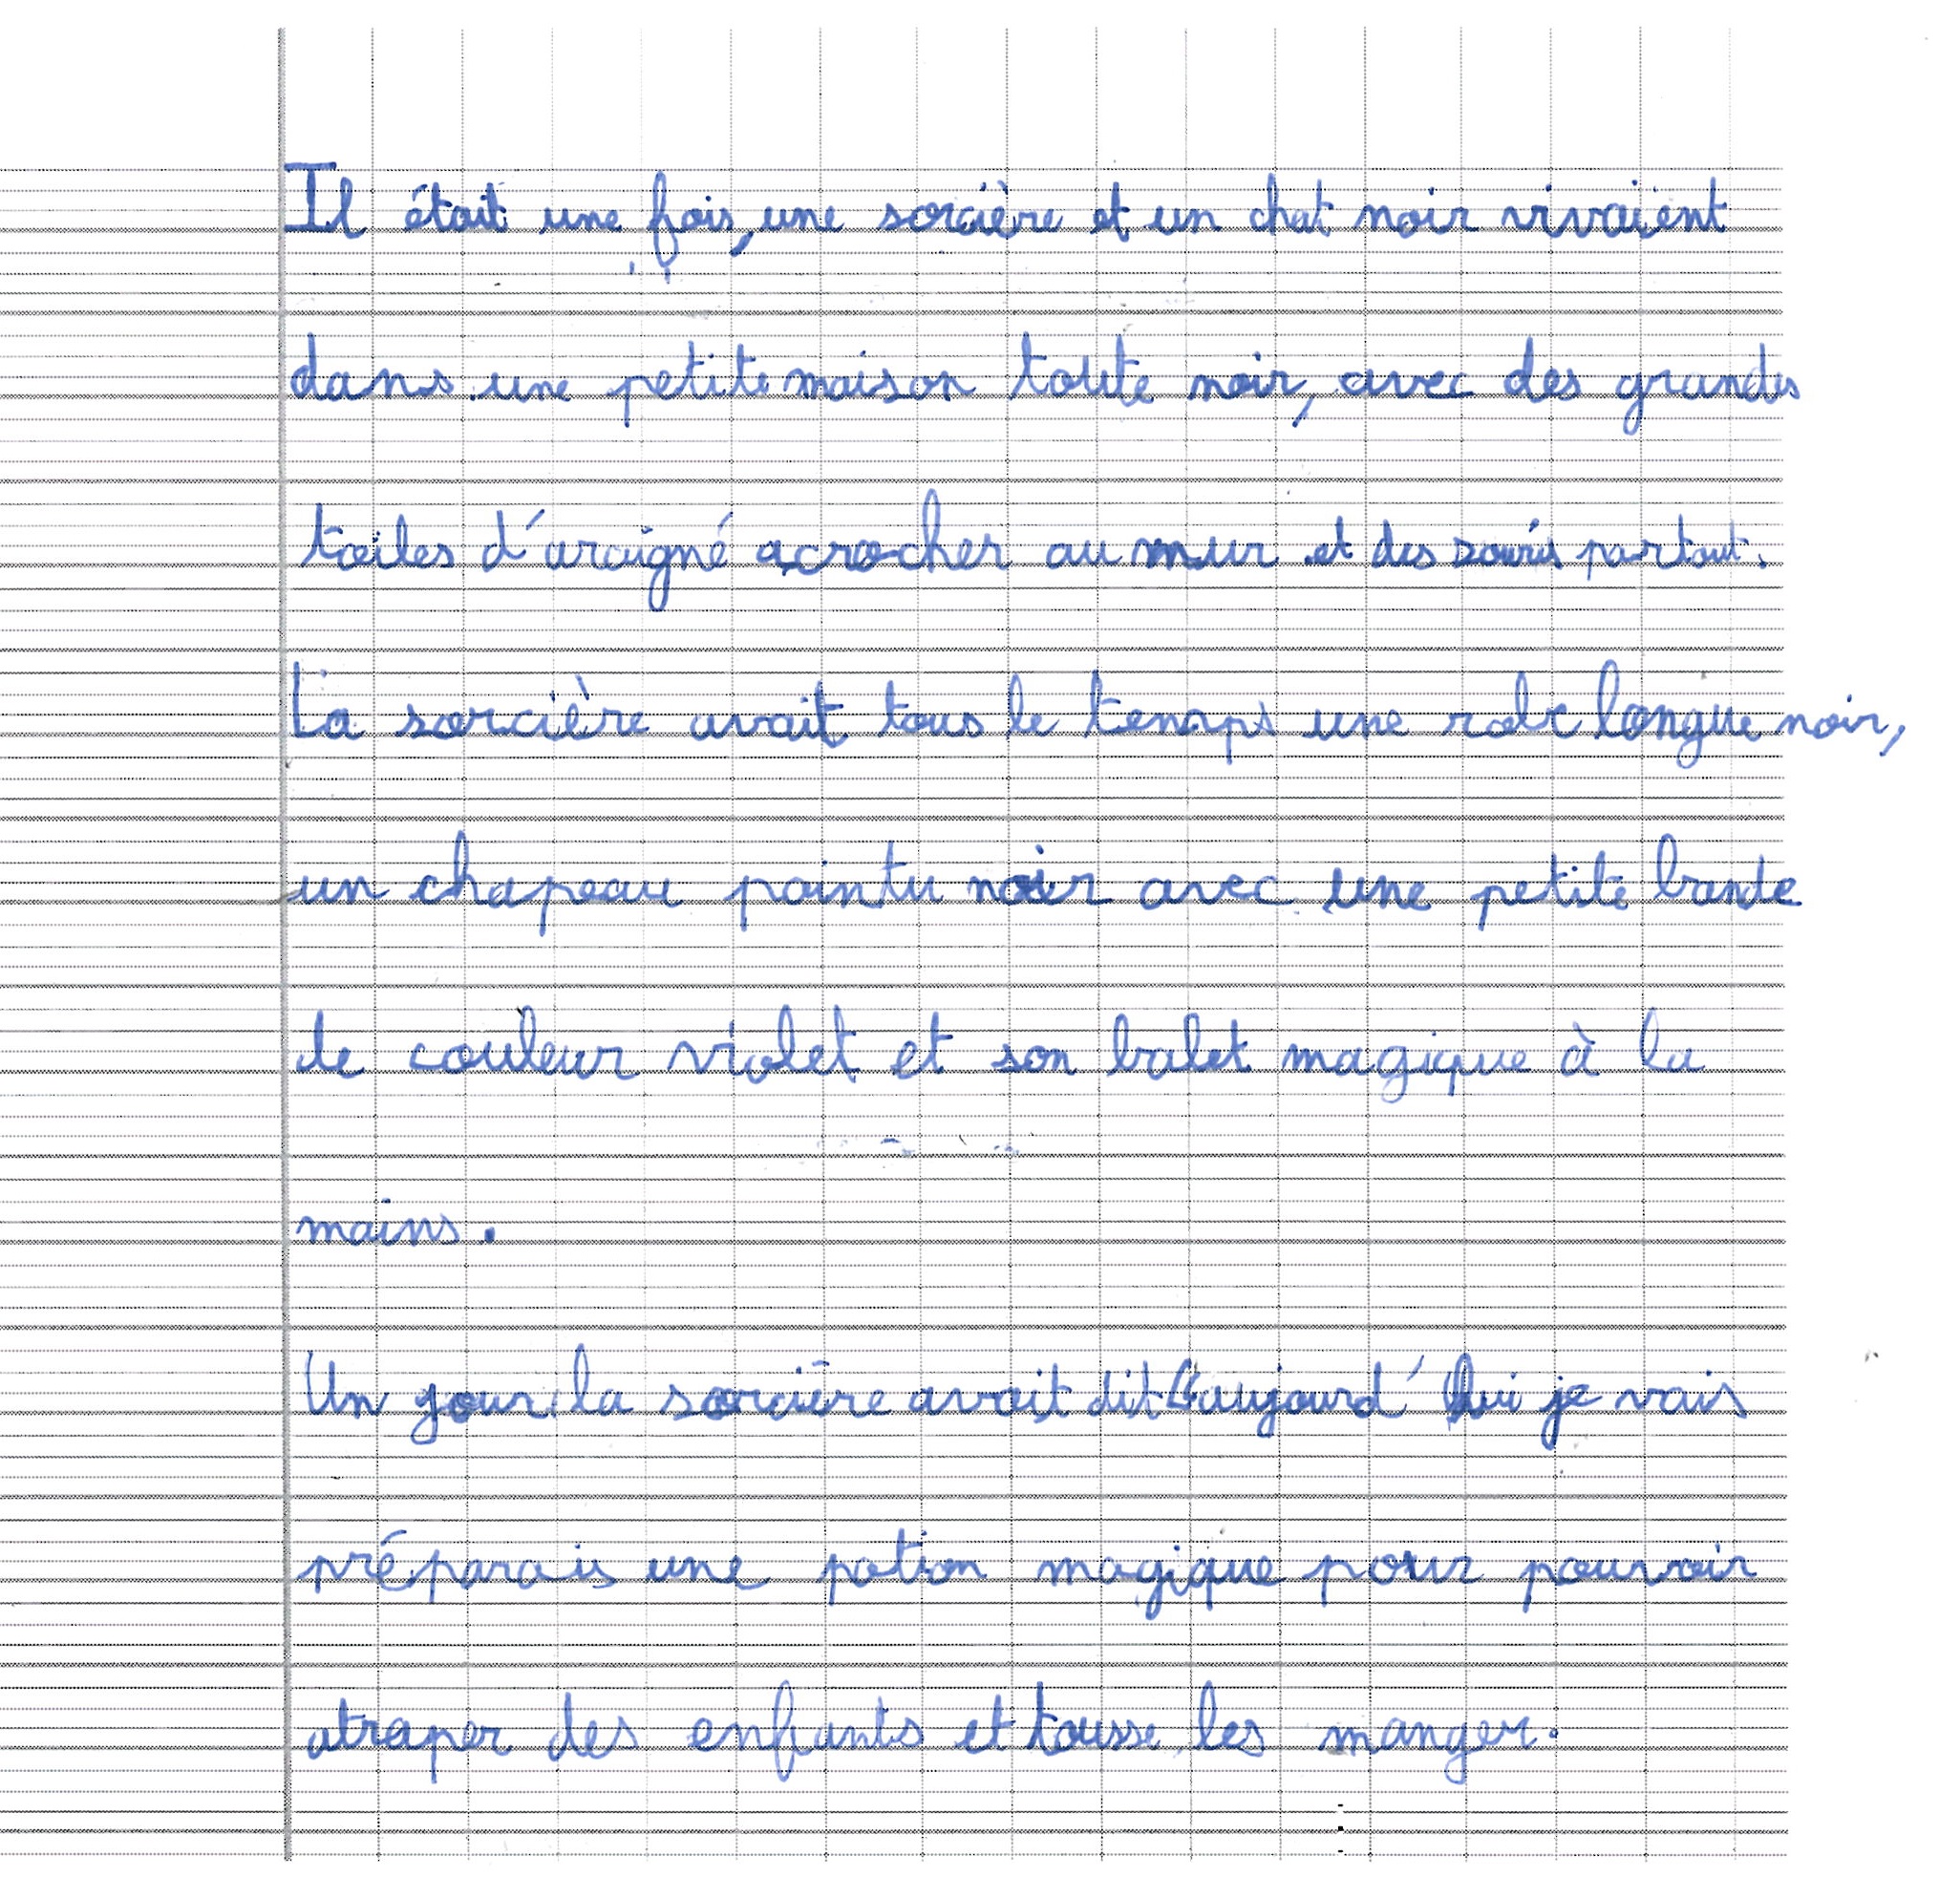 Il était une fois, une sorcière et un chat noir vivaient
dans une petite maison toute noir, avec des grandes
toiles d'araigné acrocher au mur et des souris partout.
La sorcière avait tous le temps une robe longue noir,
un chapeau pointu noir avec une petite bande
de couleur violet et son balet magique à la
mains.
Un jour la sorcière avait dit "aujourd'hui je vais
préparais une potion magique pour pouvoir
atraper des enfants et tousse les manger.